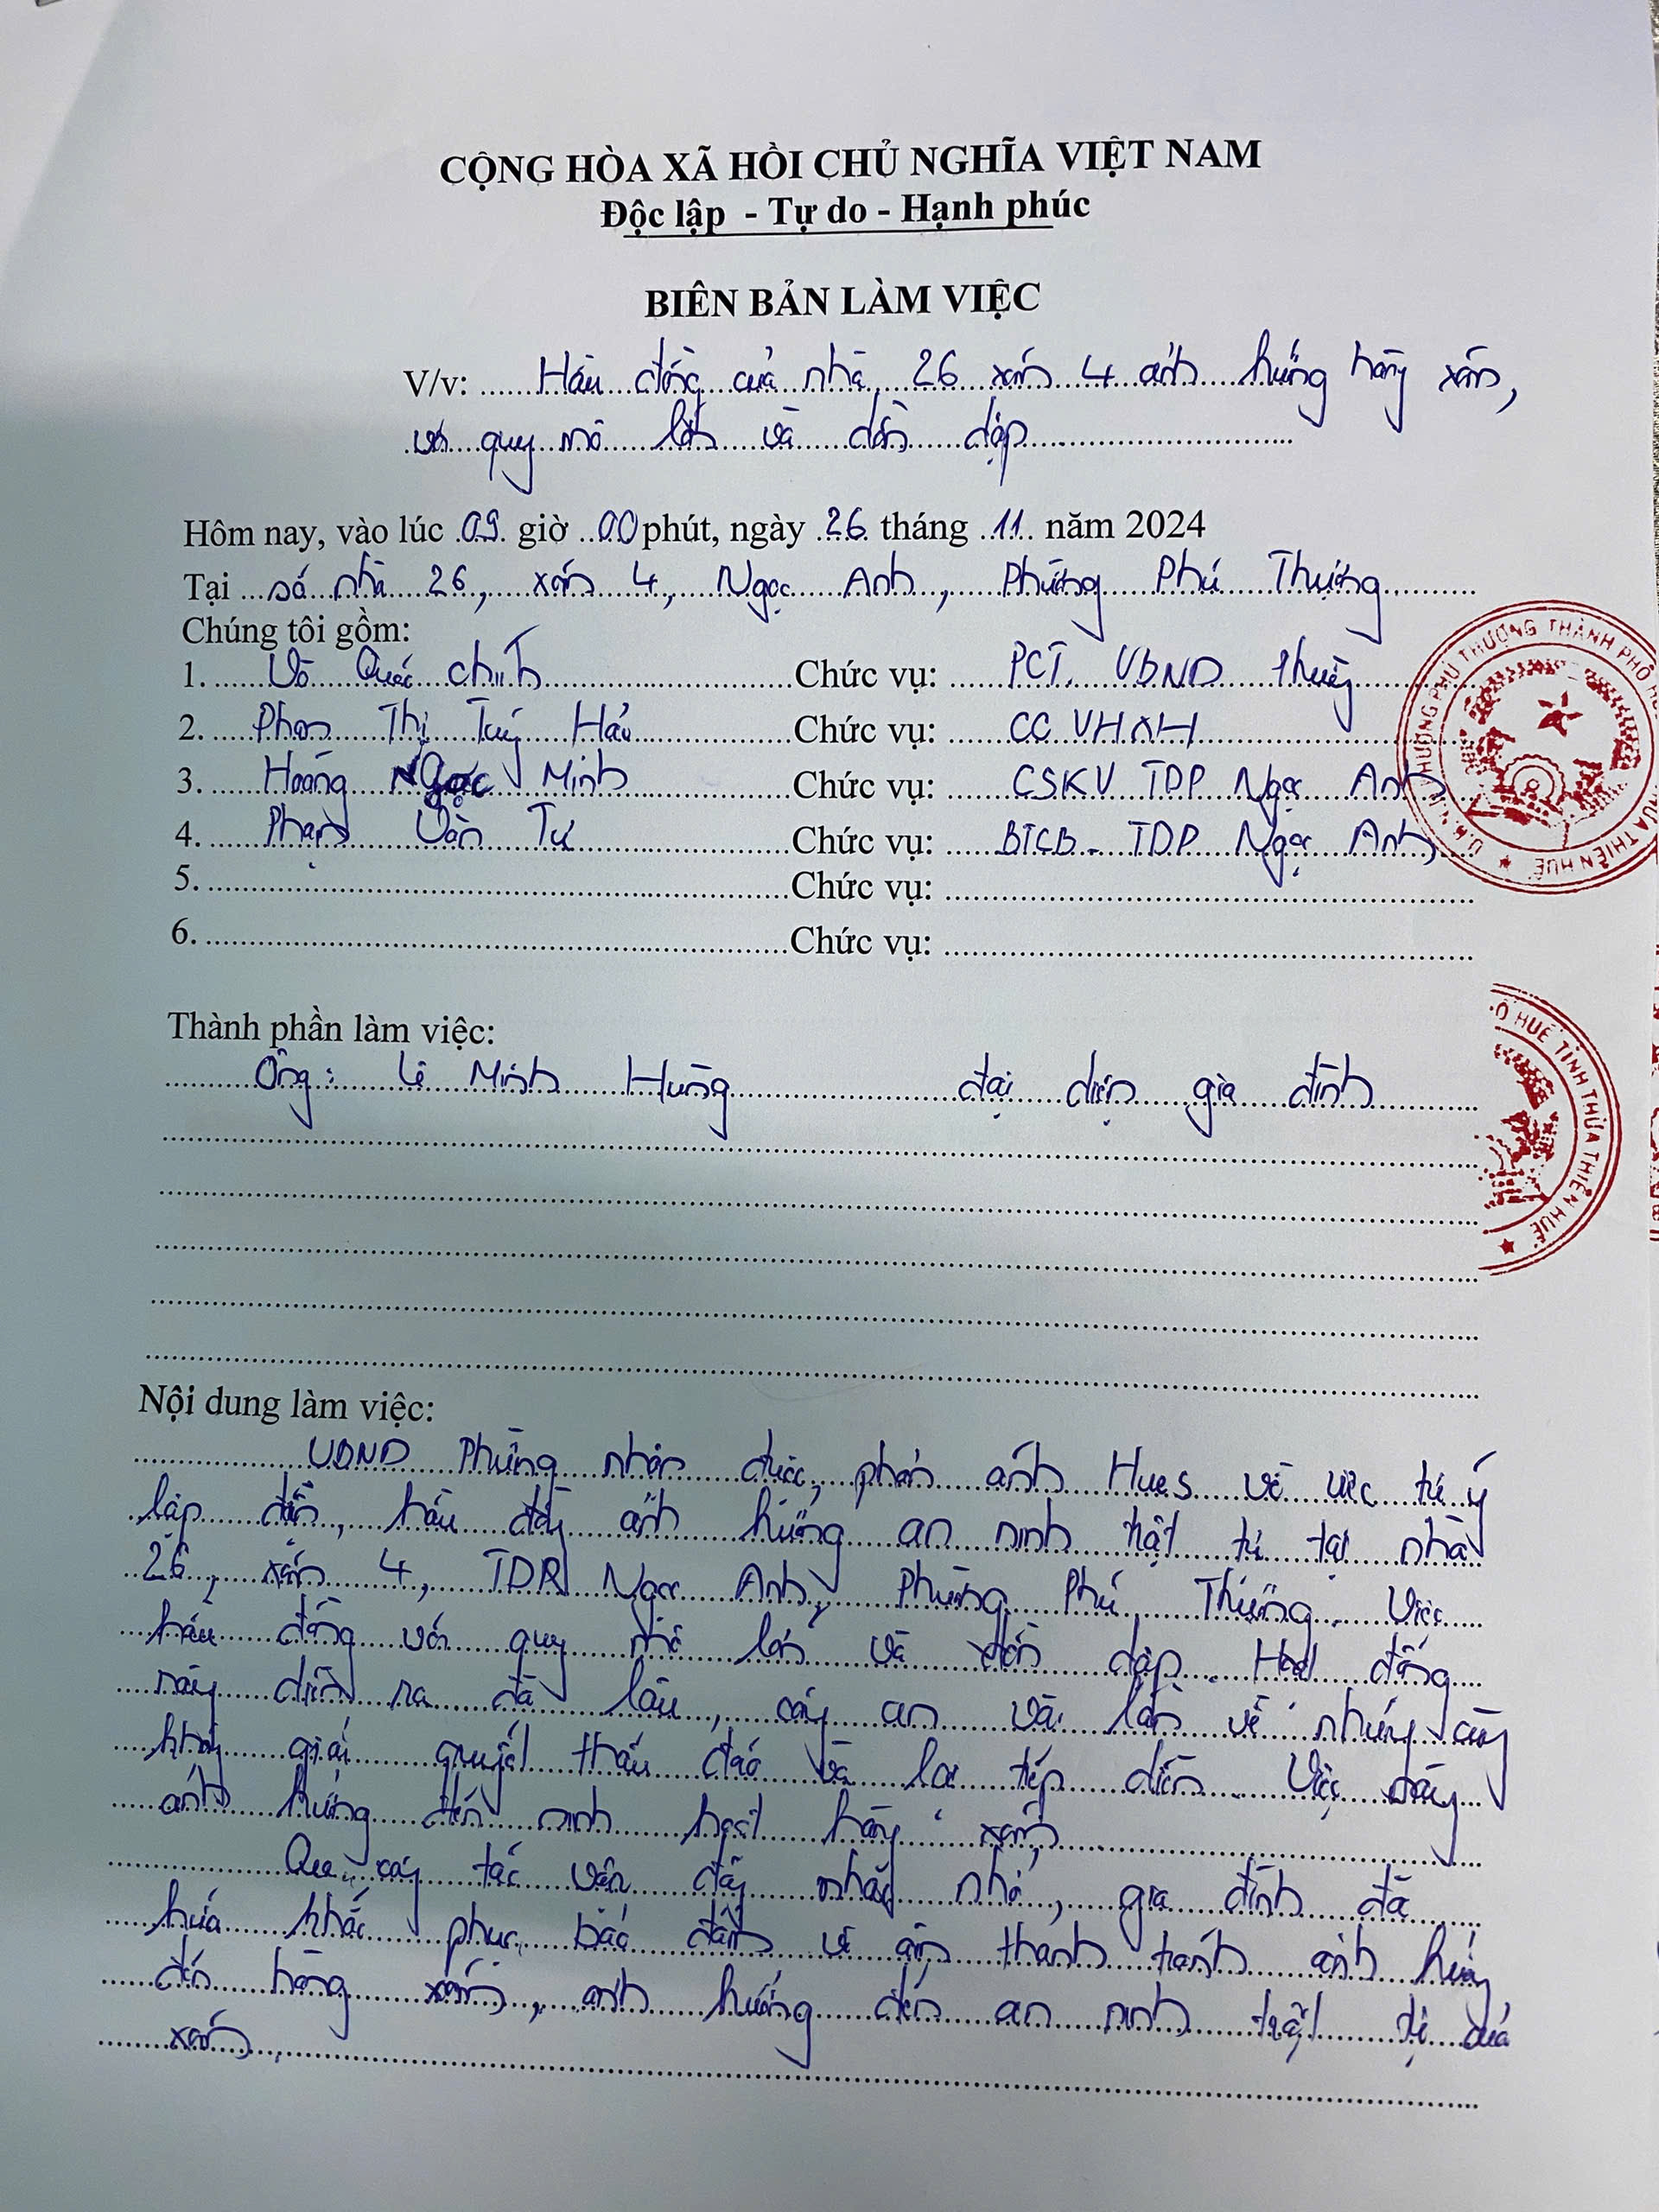 CỘNG HÒA XÃ HỒI CHỦ NGHĨA VIỆT NAM
Độc lập - Tự do - Hạnh phúc
BIÊN BẢN LÀM VIỆC
V/v: Hầu đồng của nhà 26 xóm 4 ảnh hưởng hàng xóm,
với quy mô lớn và dồn dập
Hôm nay, vào lúc 09 giờ 00 phút, ngày 26 tháng 11 năm 2024
Tại số nhà 26, xóm 4, Ngọc Anh, Phường Phú Thượng
Chúng tôi gồm:
1. Võ Quốc Chinh Chức vụ: PCT. UBND Phường
2. Phan Thị Tuý Hảo Chức vụ: CC VHXH
3. Hoàng Ngọc Minh Chức vụ: CSKV TDP Ngọc Anh
4. Phạm Văn Tư Chức vụ: BTCB - TDP Ngọc Anh
5. Chức vụ:
6. Chức vụ:
U.B.N.D PHƯỜNG PHÚ THƯỢNG THÀNH PHỐ THỪA THIÊN HUẾ
Thành phần làm việc:
Ông: Lê Minh Hùng đại diện gia đình
Ố HUẾ TỈNH THỪA THIÊN HUẾ
Nội dung làm việc:
UBND Phường nhận được phản ánh HueS về việc tự ý
lập đền, hầu đồng ảnh hưởng an ninh trật tự tại nhà
26, xóm 4, TDP Ngọc Anh, Phường Phú Thượng. Việc
hầu đồng với quy mô lớn và dồn dập. Hoạt động
này diễn ra đã lâu, công an vài lần về nhưng cũng
không giải quyết thấu đáo và lại tiếp diễn. Việc này
ảnh hưởng đến sinh hoạt hàng xóm
Qua công tác vận động nhắc nhở, gia đình đã
hứa khắc phục bảo đảm về âm thanh tránh ảnh hưởng
đến hàng xóm, ảnh hưởng đến an ninh trật tự của
xóm,